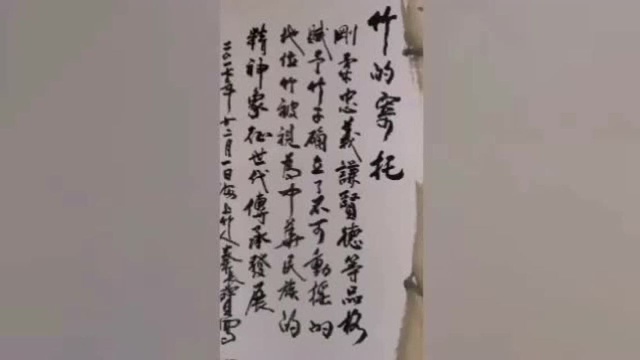 竹的寄托
剛柔忠義謙賢德等品格
賦予竹子确立了不可動搖的
地位竹被視為中華民族的
精神象征世代傳承發展
二〇一七年十二月一日